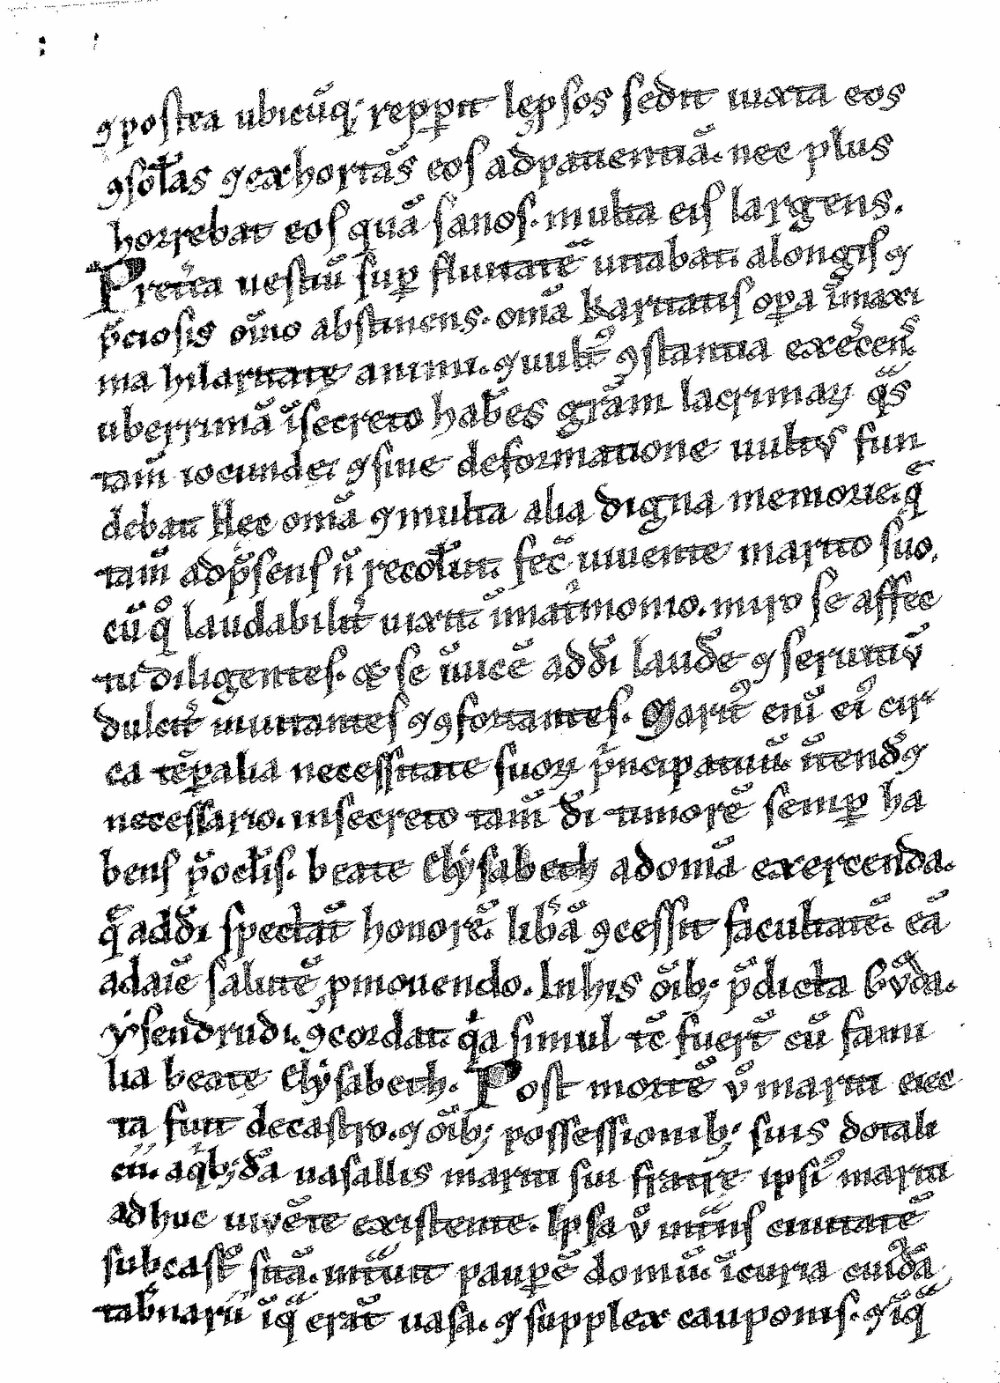 ⁊ postea ubicūq; repperit lep̄sos sedit iuxta eos
ꝯsol̄as ⁊ exhortās eos ad patientiā. nec plus
horrebat eos quā sanos. multa eis largens.
Preťea uestiū suꝑ fluitatē uitabat. a longis ⁊
p̄ciosis oīno abstinens. om̄a karitatis oꝑa ī maxi
ma hilaritate animi. ⁊ uult᷒ ꝯstantia exercens
uberrimā ī secreto hab̄es grām lacrimaꝝ q̄s
tam̄ iocunde. ⁊ sine deformatione uultus fun
debat. Hec om̄a ⁊ multa alia digna memorie. q̄
tam̄ ad p̄sens n̄ recol̄ut. fec̄ uiuente marito suo.
cū q̊ laudabilit̄ uixit ī mat̄monio. miro se affec
tu diligentes. & se īuicē ad dī laudē ⁊ seruitiū
dulcit̄ inuitantes ⁊ ꝯfortantes. Marit᷒ enī ei᷒ cir
ca tēꝑalia necessitate suoꝝ p̄ncipatuū. ītendēs
necessario. in secreto tam̄ dī timorē semꝑ ha
bens p̄ oc̄lis. beate Elẏsabeth ad om̄a exercenda.
q̄ ad dī spectāt honorē. lib̄ā ꝯcessit facultatē. eā
ad aīe salutē ꝓmouendo. In his oīb; p̄dicta Gūda.
ẏsendrudi. ꝯcordat. q̇a simul tc̄ fuert̄ cū fami
lia beate Elẏsabeth. Post mortē ū mariti eiec
ta fuit de castro. ⁊ oīb; possessionib; suis dotali
cii. a q̇b;dā uasallis mariti sui fratre ipsi᷒ mariti
adhuc iuuēe existente. Ipsa ū int̄ns ciuitatē
sub cast̄ sitā. int̄uit pauꝑē domū. ī curia cuidā
tab̄narii ī q̄ erāt uasa. ⁊ supplex cauponis. ⁊ ī q̄